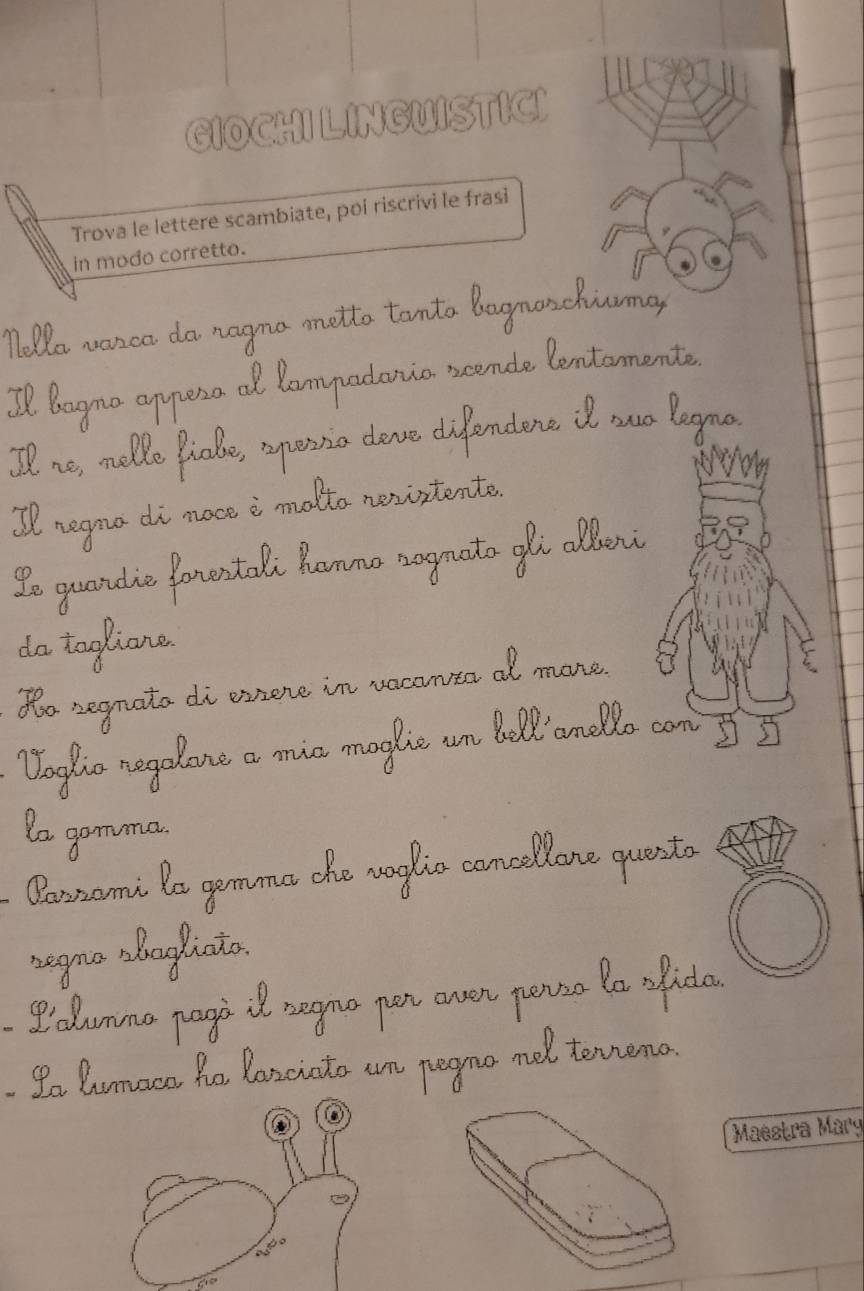 GIOCHI LINGUISTICI
Trova le lettere scambiate, poi riscrivi le frasi
in modo corretto.
Nella vasca da ragno metto tanto bagnoschiuma,
Il bagno appeso al lampadario scende lentamente.
Il re, nelle fiabe, spesso deve difendere il suo legno.
Il regno di noce è molto resistente.
Le guardie forestali hanno sognato gli alberi
da tagliare.
Ho segnato di essere in vacanza al mare.
- Voglio regalare a mia moglie un bell'anello con
la gomma.
- Passami la gemma che voglio cancellare questo
segno sbagliato.
- L'alunno pagò il segno per aver perso la sfida.
- La lumaca ha lasciato un pegno nel terreno.
Maestra Mary